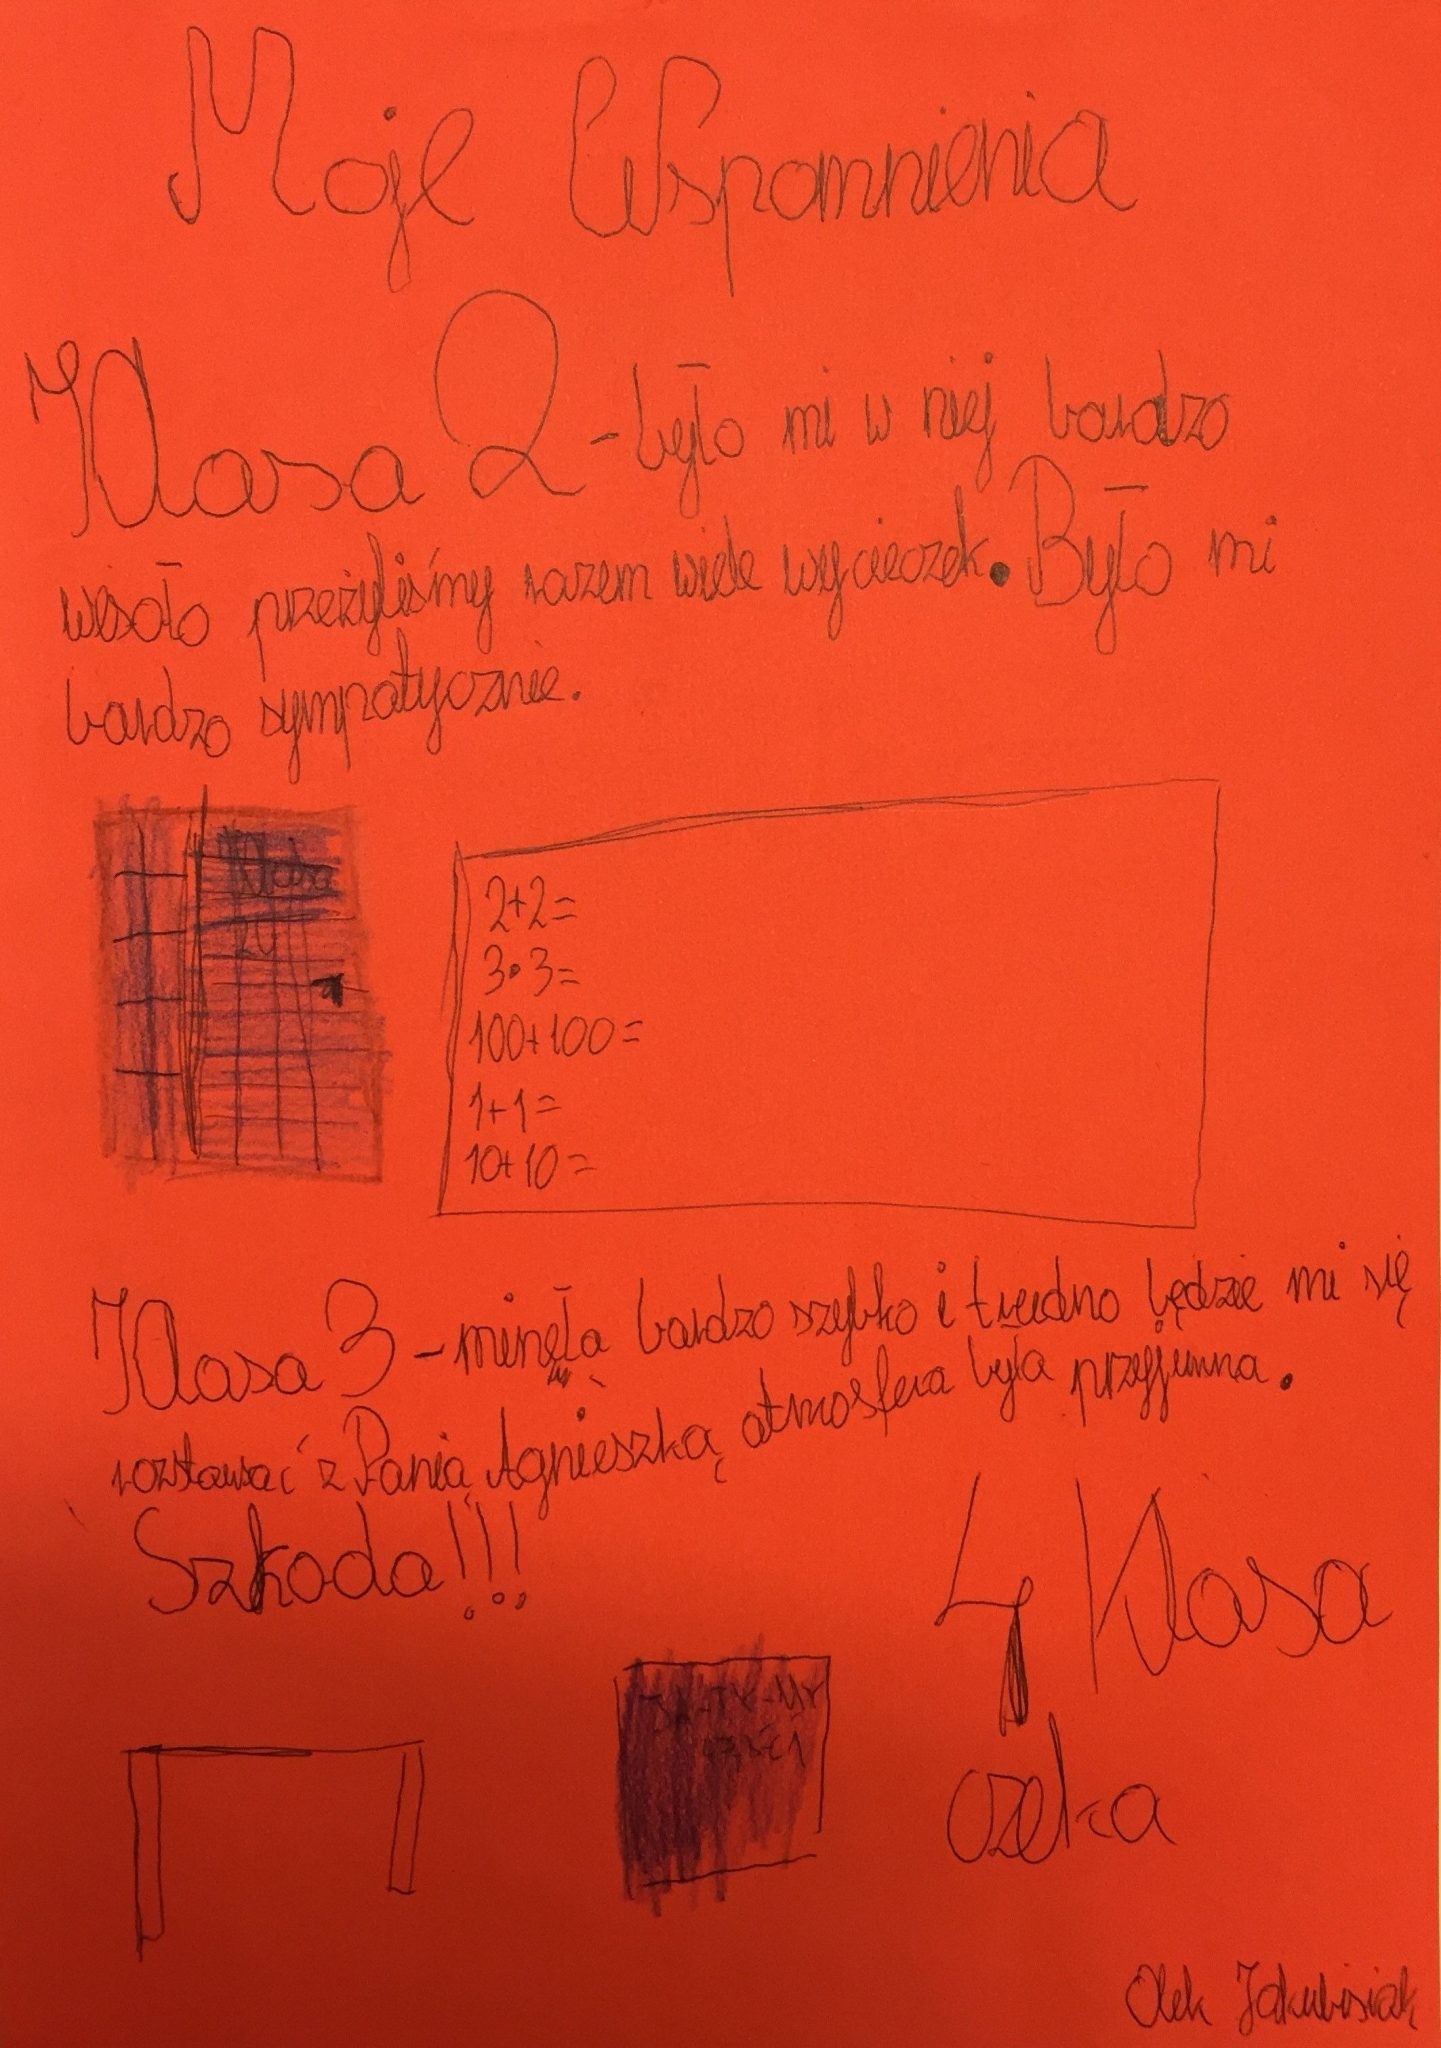 Moje Wspomnienia
Klasa 2 - było mi w niej bardzo
wesoło przeżyliśmy razem wiele wycieczek. Było mi
bardzo sympatycznie.
Klasa
2+2=
3•3=
100+100=
1+1=
10+10=
Klasa 3 - minęła bardzo szybko i trudno będzie mi się
rozstawać z Panią Agnieszką atmosfera była przyjemna.
Szkoda!!!
4 Klasa
czeka
JA-TY-MY
Olek Jakubisiak